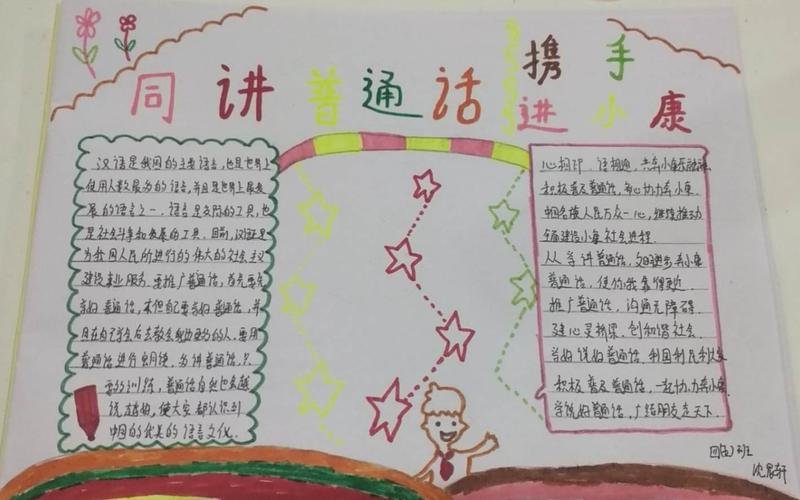 同讲普通话
携手
进小康
汉语是我国的主要语言，也是世界上
使用人数最多的语言，并且是世界上最发
展的语言之一，语言是交际的工具，也
是社会斗争和发展的工具。目前，汉语是
为我国人民所进行的伟大的社会主义
建设事业服务。要推广普通话，首先要先
学好普通话，不但自己要学好普通话，并
且在自己学会后去教会帮助更多的人，要用
普通话进行朗读，多讲普通话，只
要的训练，普通话自然越来越
说越好，使大家都认识到
中国的优美的语言文化。
心相印，语相通，共奔小康乐融融
积极普及普通话，齐心协力奔小康
中国各族人民万众一心，继续推动
全面建设小康社会进程.
从学讲普通话，文明进步奔小康
普通话，使你我靠得更近
推广普通话，沟通无障碍
建心灵桥梁，创和谐社会
学好说好普通话，利国利民利大家
积极普及普通话，一起协力奔小康
学说好普通话，广结朋友走天下
四(2)班
沈
轩